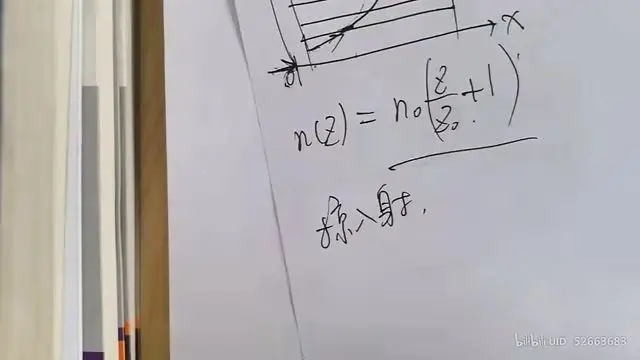 x
0
n(z) = n₀(z/z₀ + 1)
掠入射.
bilibili UID 52663683